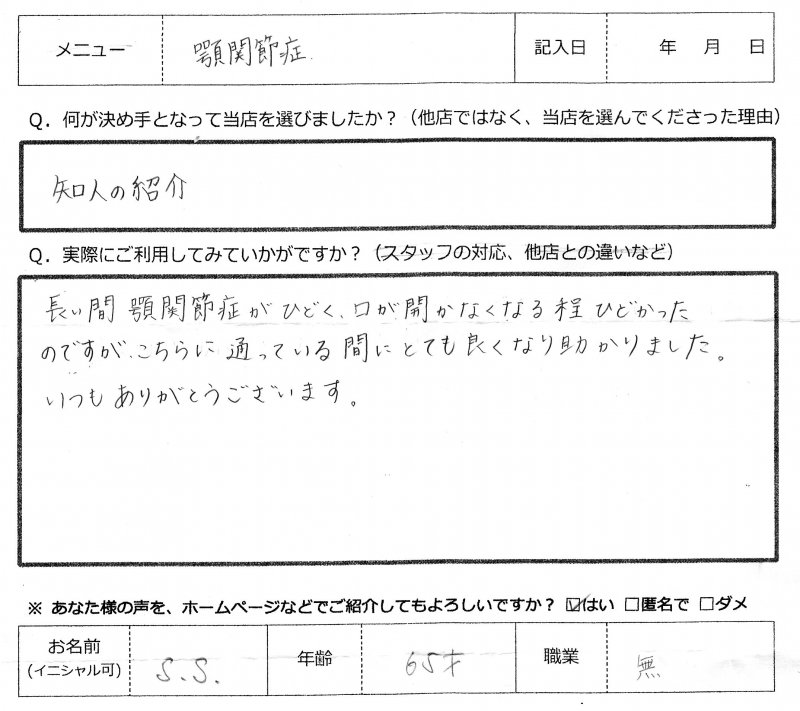 メニュー 顎関節症 記入日 年 月 日
Q. 何が決め手となって当店を選びましたか？（他店ではなく、当店を選んでくださった理由）
知人の紹介
Q. 実際にご利用してみていかがですか？（スタッフの対応、他店との違いなど）
長い間 顎関節症が ひどく、口が開かなくなる程 ひどかった
のですが、こちらに 通っている 間に とても 良くなり助かりました。
いつも ありがとうございます。
※ あなた様の声を、ホームページなどでご紹介してもよろしいですか？ ☑はい □匿名で □ダメ
お名前 (イニシャル可) S.S. 年齢 65才 職業 無